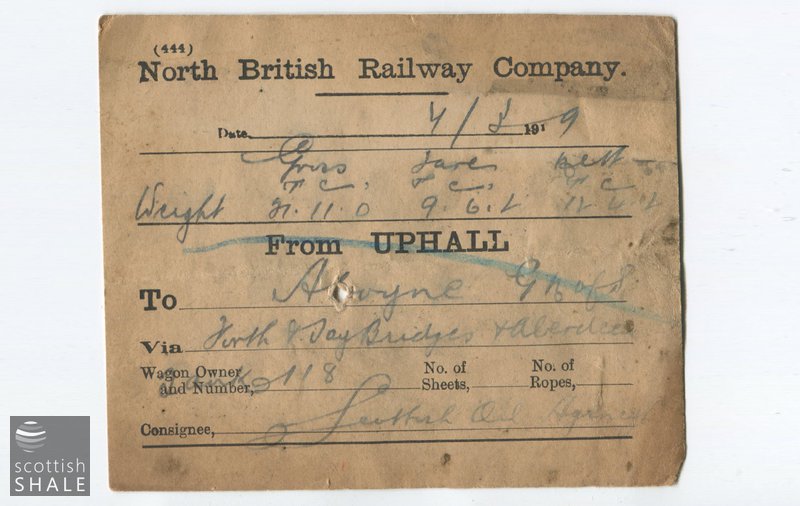 (444)
North British Railway Company.
Date 4/3 1919
Gross Tare Nett
T C. T C. T C
Weight 21.11.0 9.6.2 12.4.2
From UPHALL
To Aboyne G N of S.
Via Forth & Tay Bridges & Aberdeen
Wagon Owner and Number, Tank 118 No. of Sheets, No. of Ropes,
Consignee, Scottish Oil Agency
scottish
SHALE